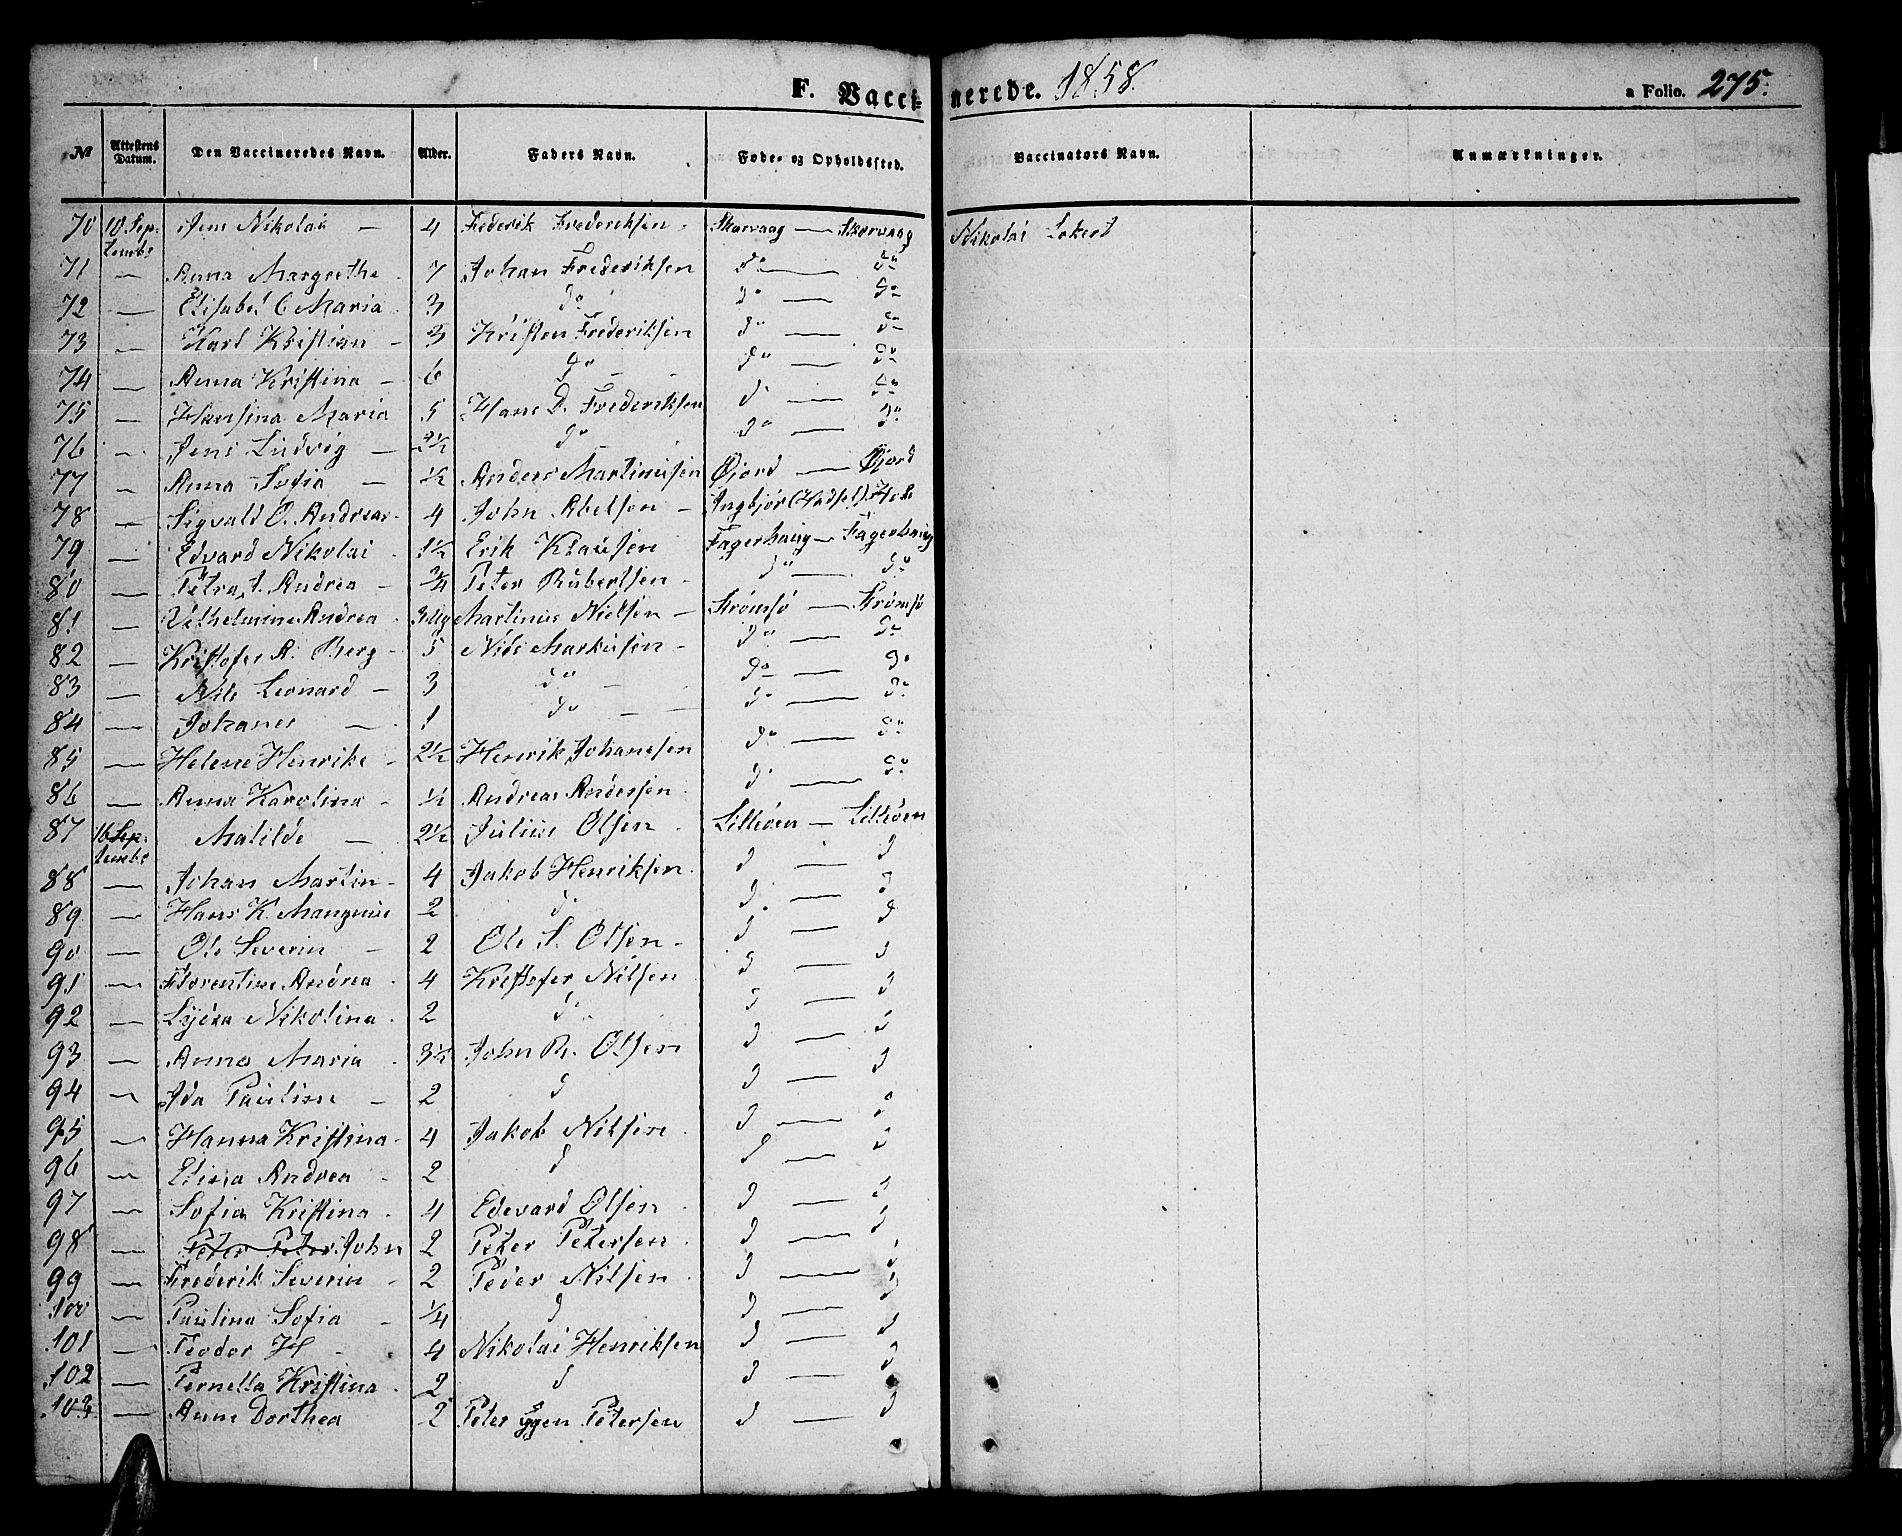 F. Vaccinerede. 1858. a Folio. 275.
№ Attestens Datum. Den Vaccineredes Navn. Alder. Faders Navn. Føde- og Opholdssted. Vaccinators Navn. Anmærkninger.
70 10 Septembr Jens Nikolai — 4 Frederik Frederiksen Skarvaag — Skarvaag Nikolai Lokert
71 — Anna Margrethe 7 Johan Frederiksen do — do
72 — Elisabet C Maria 3 do do — do
73 — Karl Kristian — 3 Kristen Frederiksen do — do
74 — Anna Kristina — 6 do — do — do
75 — Hansina Maria 5 Hans D. Frederiksen do — do
76 — Jens Ludvig — 2½ do — do — do
77 — Anna Sofia — ½ Anders Martinusen Øjord — Øjord
78 — Sigvald O. Andreas 4 John Abelsen — Ingbjør (Hadsel)
79 — Edvard Nikolai 1½ Erik Klausen Fagerhaug — Fagerhaug
80 — Petra J. Andrea — ¾ Peter Rubertsen do — do
81 — Vilhelmine Andrea 3 Ug Martinus Nielsen — Strømsø — Strømsø
82 — Kristofer A. Berg — 5 Nils Markusen — do — do
83 — Nils Leonard — 3 do — do — do
84 — Johanes — 1 do — do — do
85 — Helene Henrike — 2½ Henrik Johansen do — do
86 — Anna Karolina — ½ Andreas Andersen do — do
87 16 Septembr Matilde — 2½ Julius Olsen Lilleøen — Lilleøen
88 — Johan Martin — 4 Jakob Henriksen d — d
89 — Hans K. Mangnus 2 d d — d
90 — Ole Severin — 2 Ole S. Olsen — d — d
91 — Florentine Andrea 4 Kristofer Nilsen d — d
92 — Lydia Nikolina 2 d d — d
93 — Anna Maria 3½ John R. Olsen d — d
94 — Ida Pauline — 2 d d — d
95 — Hanna Kristina 4 Jakob Nilsen d — d
96 — Elina Andrea 2 d d — d
97 — Sofia Kristina 4 Edevard Olsen d — d
98 — Peter Peter John 2 Peter Petersen d — d
99 — Frederik Severin 2 Peder Nilsen d — d
100 — Paulina Sofia — ¼ d d — d
101 — Peodor H — 4 Nikolai Henriksen d — d
102 — Pernella Kristina 2 d d — d
103 — Anne Dorthea 2 Peter Petersen d — d